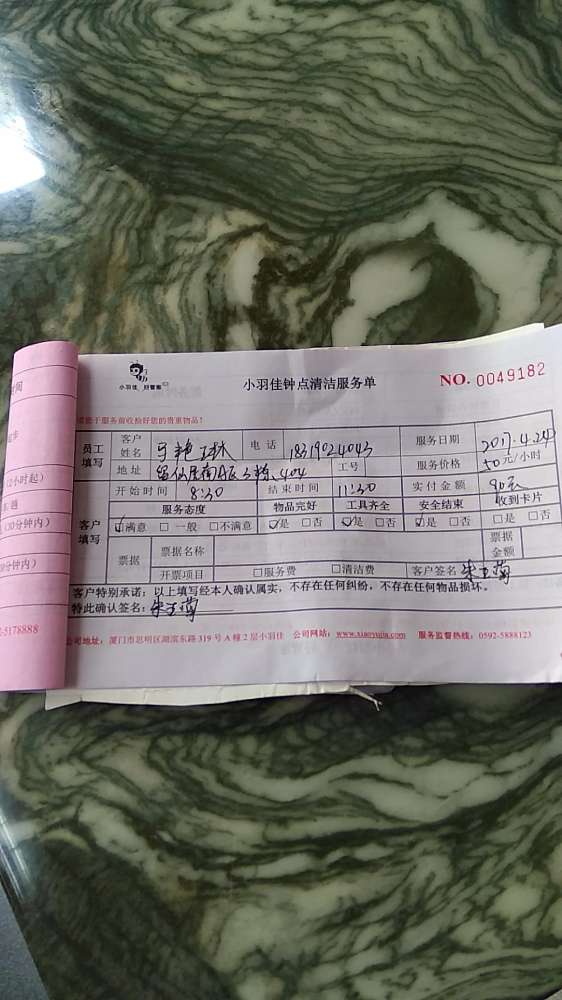 小羽佳 别管家
小羽佳钟点清洁服务单
NO. 0049182
您于服务前收拾好您的贵重物品!
员工填写 客户姓名 电话 18319024043 服务日期 2017.4.24
地址 工号 服务价格 50元/小时
开始时间 8:30 结束时间 11:30 实付金额 90元
客户填写 服务态度 物品完好 工具齐全 安全结束 收到卡片
☑满意 □一般 □不满意 ☑是 □否 ☑是 □否 ☑是 □否 □是 □否
票据 票据名称 票据金额
开票项目 □服务费 □清洁费 客户签名 朱玉菊
客户特别承诺:以上填写经本人确认属实,不存在任何纠纷,不存在任何物品损坏。
特此确认签名: 朱玉菊
公司地址:厦门市思明区湖滨东路319号A幢2层小羽佳 公司网站:www.xiaoyujia.com 服务监督热线:0592-5888123
2小时起)
(30分钟内)
0分钟内)
2-5178888